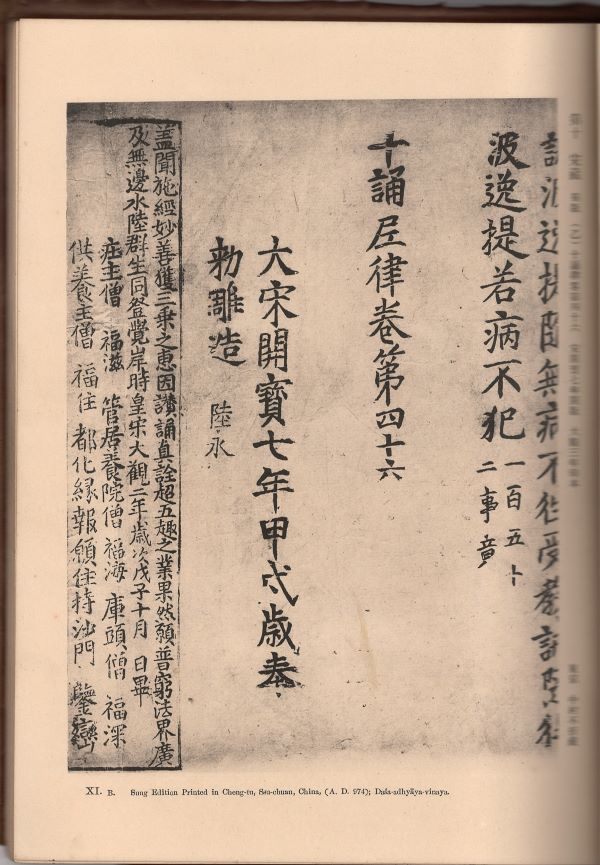 波逸提若病不犯 一百五十
二事竟
十誦尼律卷第四十六
大宋開寶七年甲戌歲奉
勅雕造 陸永
蓋聞施經妙善獲三乗之惠因讃誦真詮超五趣之業果然願普窮法界廣
及無邊水陸群生同登覺岸時皇宋大觀二年歲次戊子十月 日畢
庄主僧 福滋 管居養院僧 福海 庫頭僧 福深
供養主僧 福住 都化緣報願住持沙門 鑒巒
XI. B. Sung Edition Printed in Cheng-tu, Ssu-chuan, China, (A. D. 974); Daśa-adhyāya-vinaya.